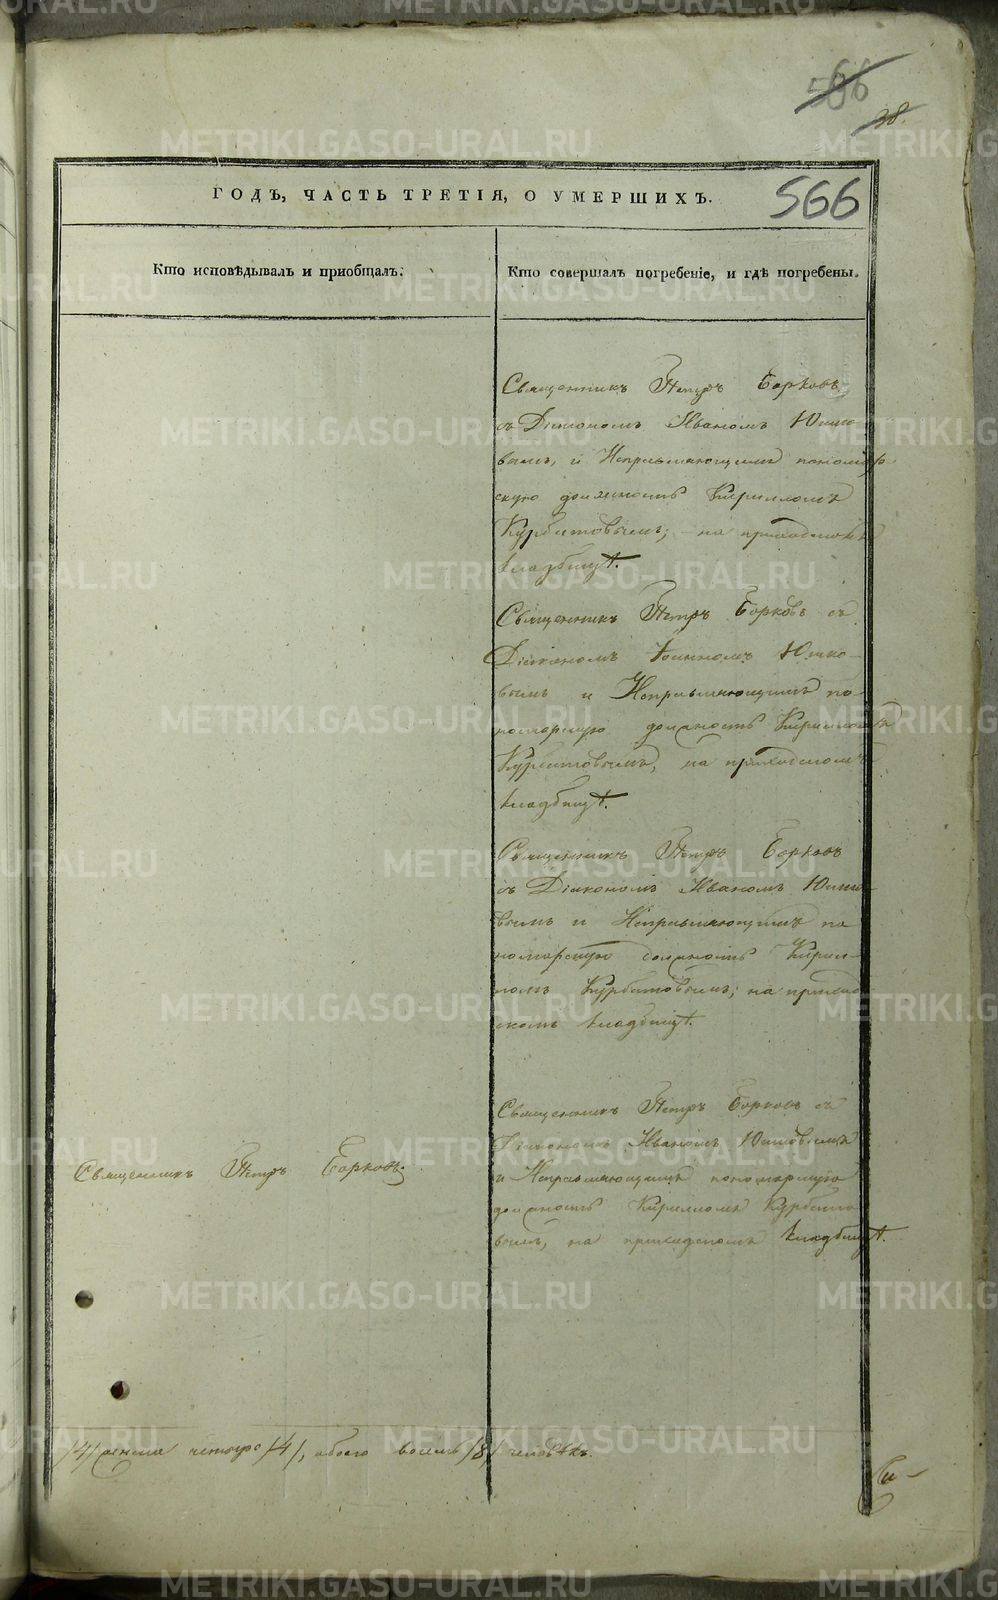 566
38.
ГОДЪ, ЧАСТЬ ТРЕТІЯ, О УМЕРШИХЪ.
566
Кто исповѣдывалъ и пріобщалъ.
Кто совершалъ погребеніе, и гдѣ погребены.
Священникъ Петръ Борковъ
съ Діакономъ Иваномъ Юшко-
вымъ, и Исправляющимъ пономар-
скую должность Кирилломъ
Курбатовымъ; на приходскомъ
кладбищѣ.
Священникъ Петръ Борковъ съ
Діакономъ Іоанномъ Юшко-
вымъ и Исправляющимъ по-
номарскую должность Кирилломъ
Курбатовымъ, на приходскомъ
кладбищѣ.
Священникъ Петръ Борковъ
съ Діакономъ Иваномъ Юшко-
вымъ и Исправляющимъ по
номарскую должность Кирил-
ломъ Курбатовымъ; на приход
скомъ кладбищѣ.
Священникъ Петръ Борковъ съ
Діакономъ Иваномъ Юшковымъ
и Исправляющимъ пономарскую
должность Кирилломъ Курбато
вымъ, на приходскомъ кладбищѣ.
Священникъ Петръ Борковъ
/4/ женска четверо /4/, обоего восемь /8/ человѣкъ.